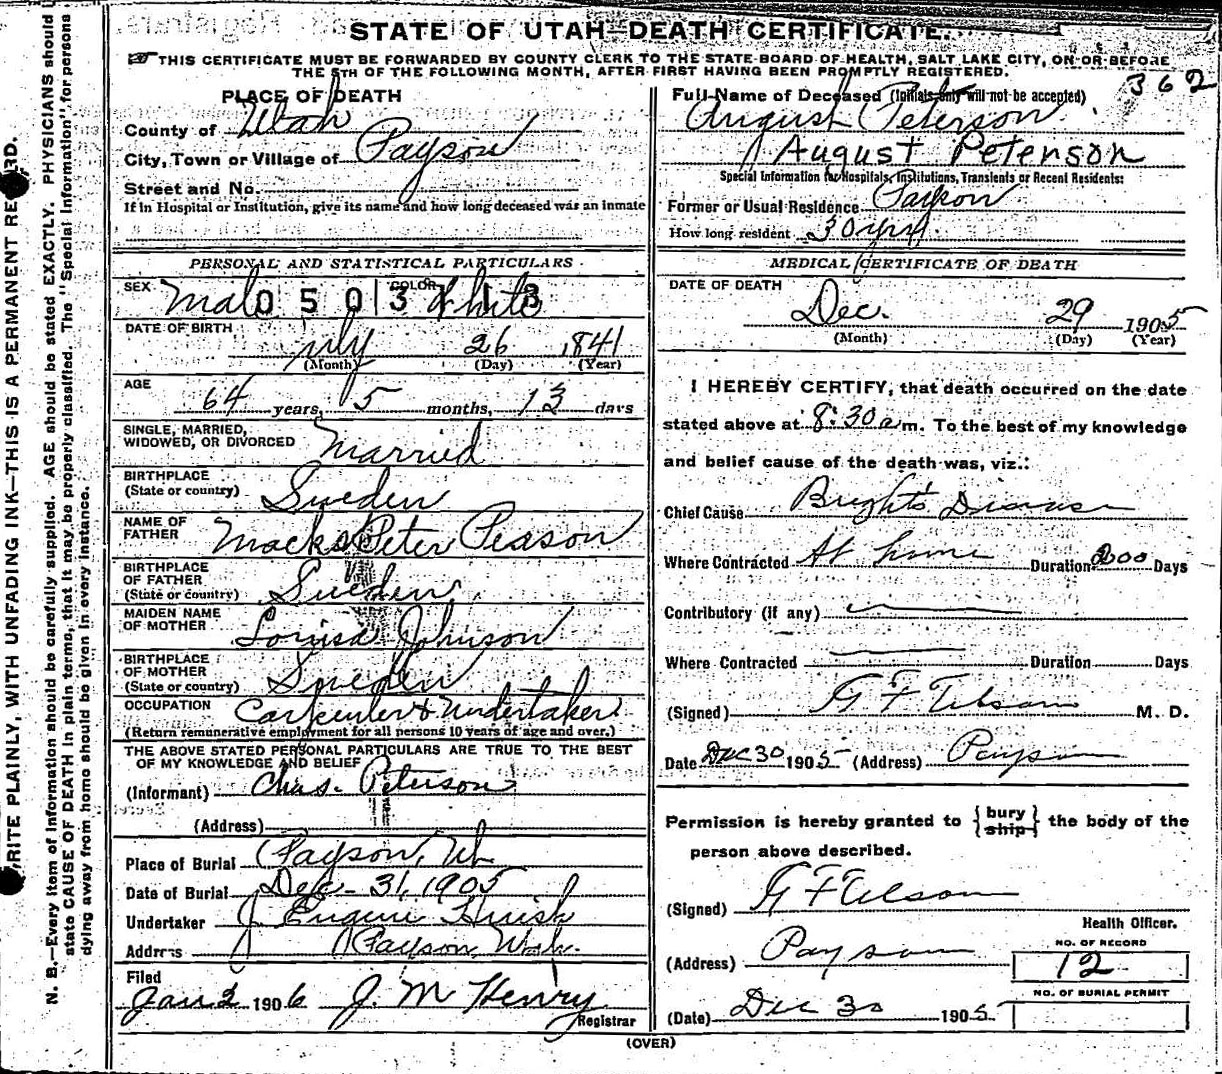 STATE OF UTAH—DEATH CERTIFICATE.
THIS CERTIFICATE MUST BE FORWARDED BY COUNTY CLERK TO THE STATE BOARD OF HEALTH, SALT LAKE CITY, ON OR BEFORE
THE 5TH OF THE FOLLOWING MONTH, AFTER FIRST HAVING BEEN PROMPTLY REGISTERED.
362
PLACE OF DEATH
County of Utah
City, Town or Village of Payson
Street and No.
If in Hospital or Institution, give its name and how long deceased was an inmate
Full Name of Deceased (Initials only will not be accepted)
August Peterson
August Peterson
Special Information for Hospitals, Institutions, Transients or Recent Residents:
Former or Usual Residence Payson
How long resident 30 yrs
PERSONAL AND STATISTICAL PARTICULARS
SEX Male COLOR White
0503 1 13
DATE OF BIRTH
July 26 1841
(Month) (Day) (Year)
AGE
64 years, 5 months, 13 days
SINGLE, MARRIED,
WIDOWED, OR DIVORCED Married
BIRTHPLACE
(State or country) Sweden
NAME OF
FATHER Peter Peason
BIRTHPLACE
OF FATHER
(State or country) Sweden
MAIDEN NAME
OF MOTHER Louisa Johnson
BIRTHPLACE
OF MOTHER
(State or country) Sweden
OCCUPATION Carpenter & Undertaker
(Return remunerative employment for all persons 10 years of age and over.)
THE ABOVE STATED PERSONAL PARTICULARS ARE TRUE TO THE BEST
OF MY KNOWLEDGE AND BELIEF
(Informant) Chas. Peterson
(Address)
Place of Burial Payson, Ut
Date of Burial Dec - 31, 1905
Undertaker J Eugene Huish
Address Payson, Utah.
Filed
Jan 2 1906 J. M Henry
Registrar
MEDICAL CERTIFICATE OF DEATH
DATE OF DEATH
Dec. 29 1905
(Month) (Day) (Year)
I HEREBY CERTIFY, that death occurred on the date
stated above at 8:30 a m. To the best of my knowledge
and belief cause of the death was, viz.:
Chief Cause Brights Disease
Where Contracted At home Duration 200 Days
Contributory (if any)
Where Contracted Duration Days
(Signed) G F M. D.
Date Dec 30 1905 (Address) Payson
Permission is hereby granted to {bury ship} the body of the
person above described.
(Signed) G F
Health Officer.
(Address) Payson
NO. OF RECORD
12
NO. OF BURIAL PERMIT
(Date) Dec 30 1905
(OVER)
RITE PLAINLY, WITH UNFADING INK—THIS IS A PERMANENT RE RD.
N. B.—Every item of information should be carefully supplied. AGE should be stated EXACTLY. PHYSICIANS should
state CAUSE OF DEATH in plain terms, that it may be properly classified. The "Special Information" for persons
dying away from home should be given in every instance.